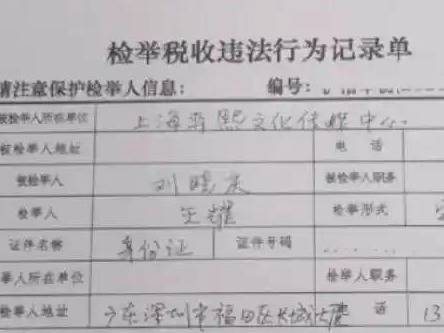 检举税收违法行为记录单
请注意保护检举人信息： 编号：
被检举人所在单位 上海 熙文化传媒中心
被检举人地址 电 话
被检举人 刘晓庆 被检举人职务
检举人 王耀 检举形式
证件名称 身份证 证件号码
举人所在单位 检举人职务
举人地址 广东深圳市福田区长城大厦 话 13